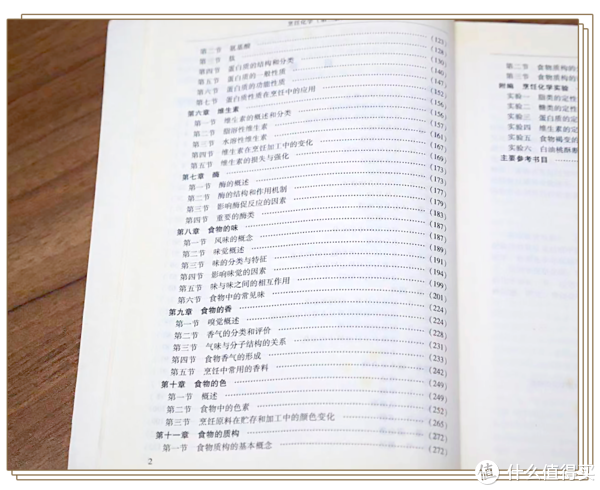 烹饪化学
第二节 氨基酸
第三节 肽 (128)
第四节 蛋白质的结构和分类 (130)
第五节 蛋白质的一般性质 (140)
第六节 蛋白质的功能性质 (147)
第七节 蛋白质性质在烹饪中的应用
第六章 维生素
第一节 维生素的概述和分类 (157)
第二节 脂溶性维生素
第三节 水溶性维生素 (161)
第四节 维生素在烹饪加工中的变化 (167)
第五节 维生素的损失与强化 (169)
第七章 酶 (173)
第一节 酶的概述 (173)
第二节 酶的结构和作用机制 (177)
第三节 影响酶促反应的因素 (179)
第四节 重要的酶类 (183)
第八章 食物的味 (187)
第一节 风味的概念 (187)
第二节 味觉概述 (189)
第三节 味的分类与特征 (191)
第四节 影响味觉的因素 (194)
第五节 味与味之间的相互作用 (199)
第六节 食物中的常见味 (201)
第九章 食物的香 (224)
第一节 嗅觉概述 (224)
第二节 香气的分类和评价 (228)
第三节 气味与分子结构的关系 (231)
第四节 食物香气的形成 (233)
第五节 烹饪中常用的香料 (242)
第十章 食物的色 (249)
第一节 概述 (249)
第二节 食物中的色素 (252)
第三节 烹饪原料在贮存和加工中的颜色变化 (265)
第十一章 食物的质构 (272)
第一节 食物质构的基本概念 (272)
2
第二节 食物质构的
第三节 食物质构的
附编 烹饪化学实验
实验一 脂类的定性
实验二 糖类的定性
实验三 蛋白质的定
实验四 维生素的定
实验五 食物褐变的
实验六 白油桃酥
主要参考书目
值 什么值得买